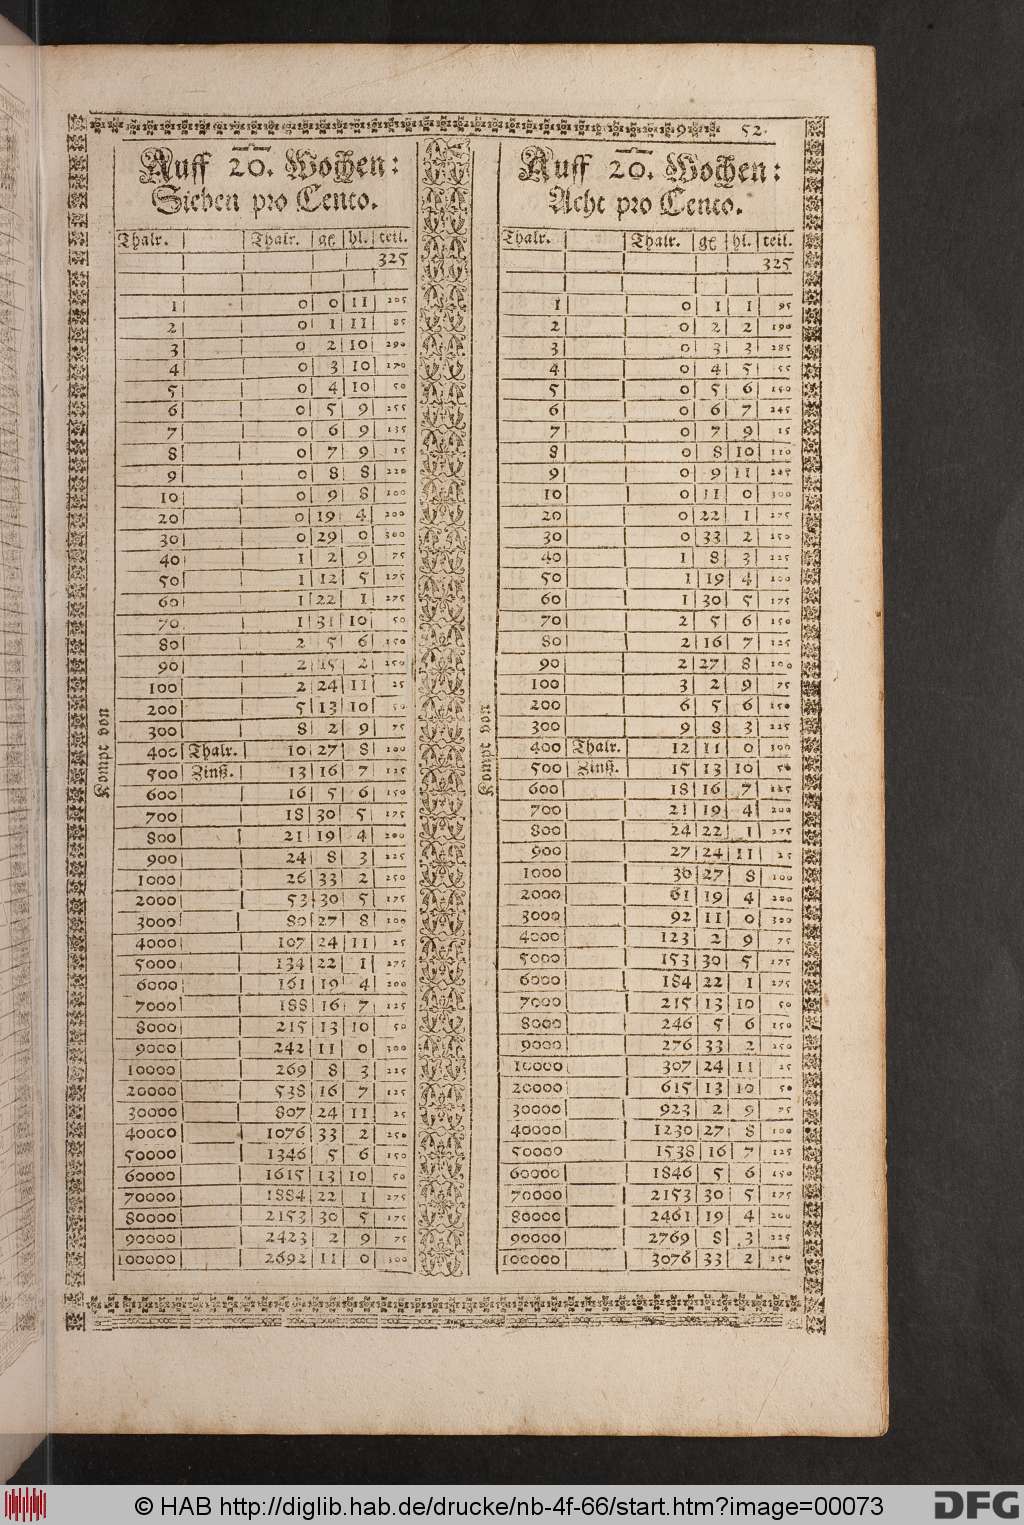 52.
Auff 20. Wochen:
Sieben pro Cento.
Thalr. Thalr. gℓ hl. teil.
325
1 0 0 11 205
2 0 1 11 85
3 0 2 10 290
4 0 3 10 170
5 0 4 10 50
6 0 5 9 255
7 0 6 9 135
8 0 7 9 15
9 0 8 8 220
10 0 9 8 100
20 0 19 4 200
30 0 29 0 300
40 1 2 9 75
50 1 12 5 175
60 1 22 1 275
70 1 31 10 50
80 2 5 6 150
90 2 15 2 250
100 2 24 11 25
200 5 13 10 50
300 8 2 9 75
400 Thalr. 10 27 8 100
500 Zinß. 13 16 7 125
600 16 5 6 150
700 18 30 5 175
800 21 19 4 200
900 24 8 3 225
1000 26 33 2 250
2000 53 30 5 175
3000 80 27 8 100
4000 107 24 11 25
5000 134 22 1 275
6000 161 19 4 200
7000 188 16 7 125
8000 215 13 10 50
9000 242 11 0 300
10000 269 8 3 225
20000 538 16 7 125
30000 807 24 11 25
40000 1076 33 2 250
50000 1346 5 6 150
60000 1615 13 10 50
70000 1884 22 1 275
80000 2153 30 5 175
90000 2423 2 9 75
100000 2692 11 0 300
Kompt von
Auff 20. Wochen:
Acht pro Cento.
Thalr. Thalr. gℓ hl. teil.
325
1 0 1 1 95
2 0 2 2 190
3 0 3 3 285
4 0 4 5 55
5 0 5 6 150
6 0 6 7 245
7 0 7 9 15
8 0 8 10 110
9 0 9 11 205
10 0 11 0 300
20 0 22 1 275
30 0 33 2 250
40 1 8 3 225
50 1 19 4 200
60 1 30 5 175
70 2 5 6 150
80 2 16 7 125
90 2 27 8 100
100 3 2 9 75
200 6 5 6 150
300 9 8 3 225
400 Thalr. 12 11 0 300
500 Zinß. 15 13 10 50
600 18 16 7 125
700 21 19 4 200
800 24 22 1 275
900 27 24 11 25
1000 30 27 8 100
2000 61 19 4 200
3000 92 11 0 300
4000 123 2 9 75
5000 153 30 5 175
6000 184 22 1 275
7000 215 13 10 50
8000 246 5 6 150
9000 276 33 2 250
10000 307 24 11 25
20000 615 13 10 50
30000 923 2 9 75
40000 1230 27 8 100
50000 1538 16 7 125
60000 1846 5 6 150
70000 2153 30 5 175
80000 2461 19 4 200
90000 2769 8 3 225
100000 3076 33 2 250
Kompt von
© HAB http://diglib.hab.de/drucke/nb-4f-66/start.htm?image=00073
DFG